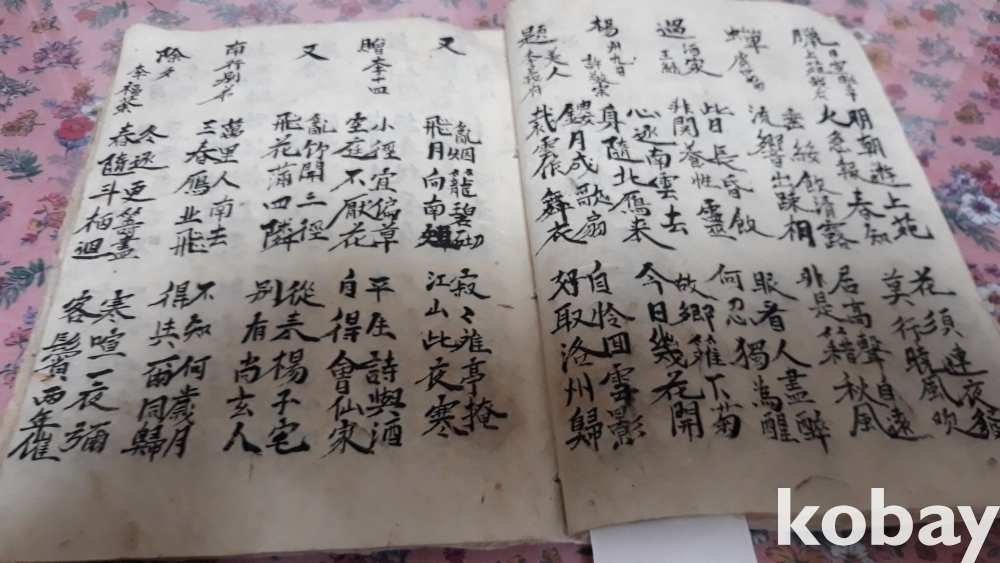 臘日宣詔幸
上苑
明朝遊上苑
火急報春知
花須連夜發
莫待曉風吹
蟬 虞世南
垂緌飲清露
流響出疎桐
居高聲自遠
非是籍秋風
過酒家
王績
此日長昏飲
非關養性靈
眼看人盡醉
何忍獨為醒
楊州九日
許敬宗
心逐南雲去
身隨北鴈來
故鄉籬下菊
今日幾花開
題美人
李義府
鏤月成歌扇
裁雲作舞衣
自怜回雪影
好取洛州歸
又
亂烟籠碧砌
飛月向南
寂〻離亭掩
江山此夜寒
贈李十四
小徑宜偏草
空庭不厭花
平生詩與酒
自得會仙家
又
亂竹開三徑
飛花滿四隣
從來楊子宅
別有尚玄人
南行別弟
萬里人南去
三春鴈北飛
不知何歲月
得共爾同歸
除夕
冬逐更籌盡
春隨斗柄廻
寒喧一夜彌
客鬢兩年催
kobay